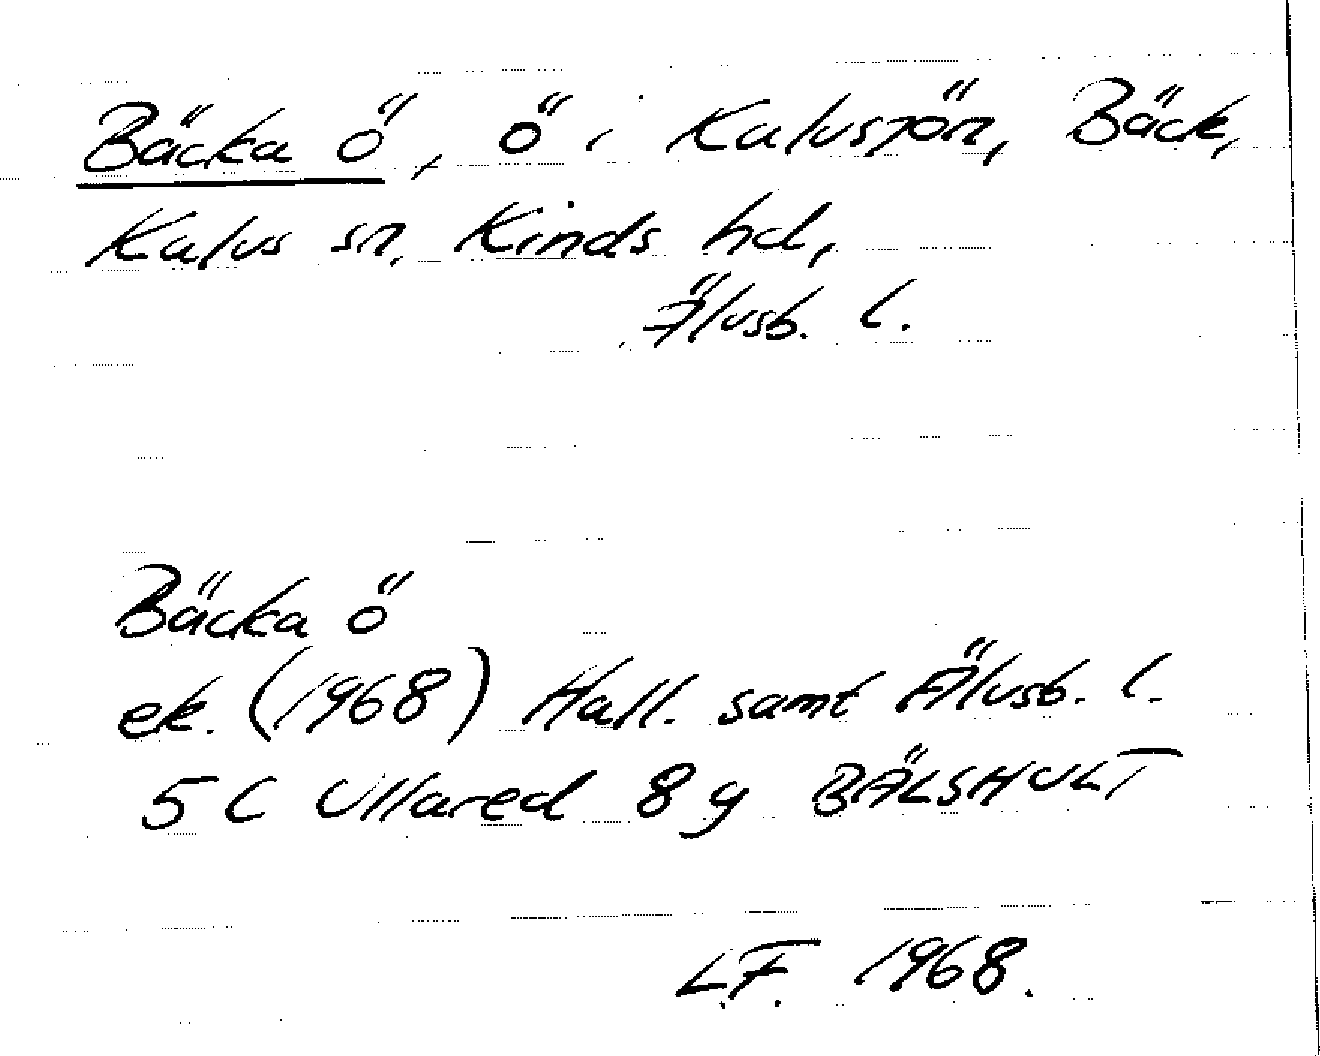 Bäcka ö, ö i Kalvsjön, Bäck,
Kalvs sn, Kinds hd,
Älvsb. l.
Bäcka ö
ek. (1968) Hall. samt Älvsb. l.
5 C Ullared 8 g BÄLSHULT
L.F. 1968.